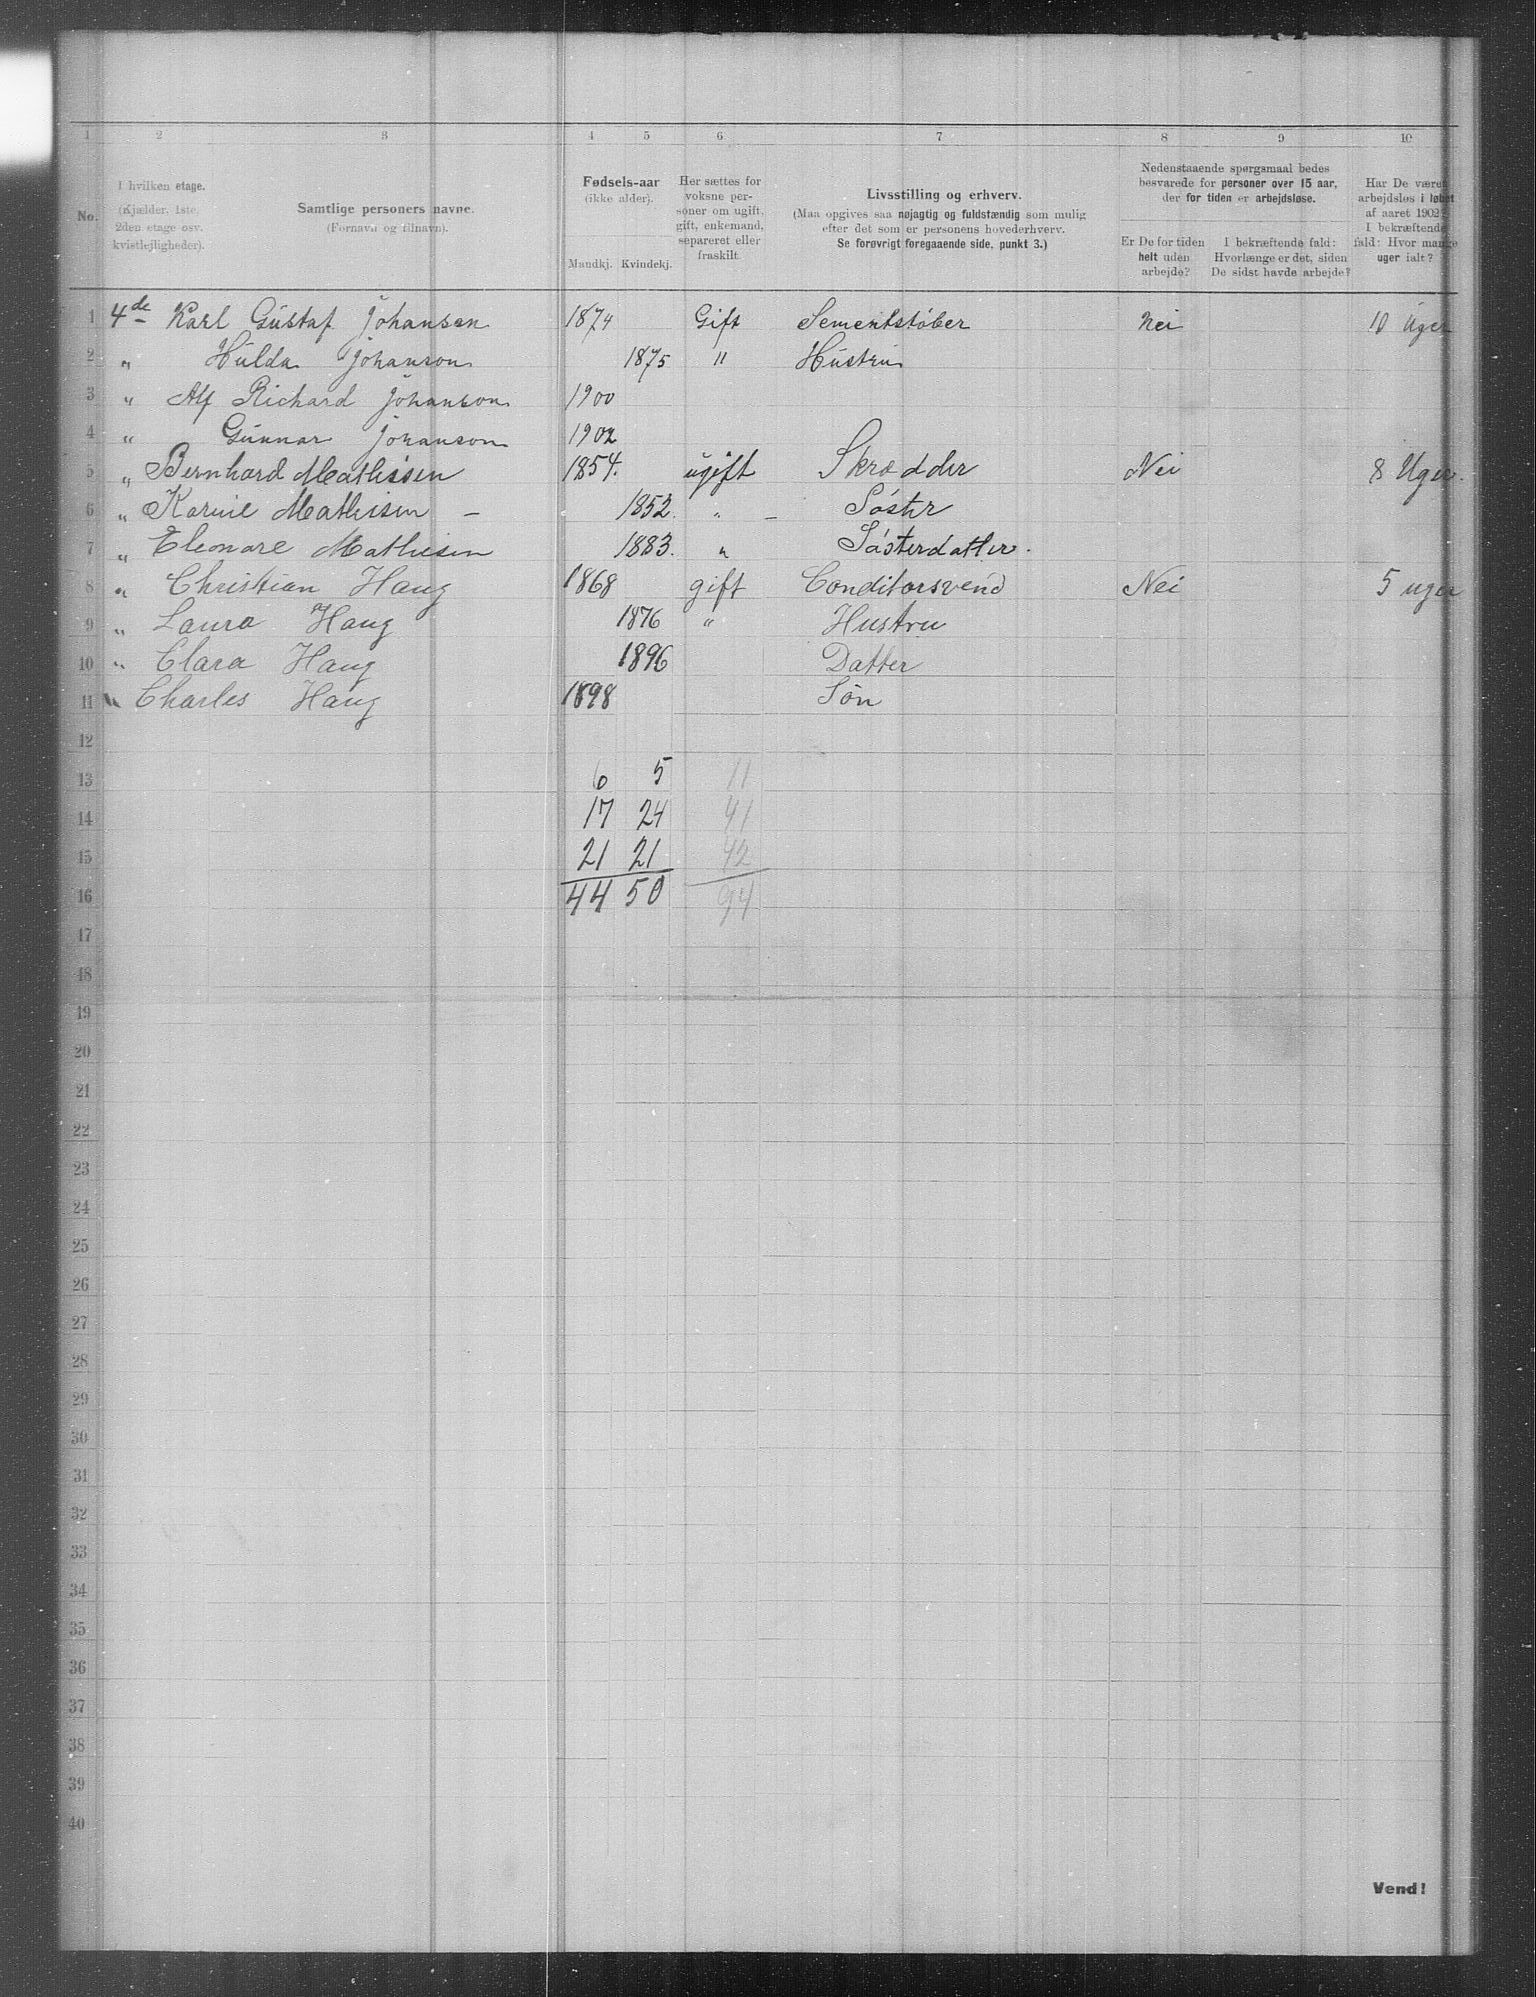 1 2 3 4 5 6 7 8 9 10
No.
I hvilken etage.
(Kjælder, 1ste, 2den etage osv. kvistlejligheder).
Samtlige personers navne.
(Fornavn og tilnavn).
Fødsels-aar
(ikke alder).
Mandkj. Kvindekj.
Her sættes for voksne personer om ugift, gift, enkemand, separeret eller fraskilt.
Livsstilling og erhverv.
(Maa opgives saa nøjagtig og fuldstændig som mulig
efter det som er personens hovederhverv.
Se forøvrigt foregaaende side, punkt 3.)
Nedenstaaende spørgsmaal bedes
besvarede for personer over 15 aar,
der for tiden er arbejdsløse.
Er De for tiden
helt uden
arbejde?
I bekræftende fald:
Hvorlænge er det, siden
De sidst havde arbejde?
Har De været
arbejdsløs i løbet
af aaret 1902?
I bekræftende
fald: Hvor mange
uger ialt?
1 4de Karl Gustaf Johansen 1874 Gift Sementstøber Nei 10 Uger
2 " Hulda Johanson 1875 " Hustru
3 " Alf Richard Johanson 1900
4 " Gunnar Johanson 1902
5 " Bernhard Mathisen 1854. ugift Skrædder Nei 8 Uger.
6 " Karine Mathisen – 1852. " – Søster
7 " Eleonare Mathisen 1883. " Søsterdatter.
8 " Christian Haug 1868 gift Conditorsvend Nei 5 uger
9 " Laura Haug 1876 " Hustru
10 " Clara Haug 1896 Datter
11 " Charles Haug 1898 Søn
12
13 6 5 11
14 17 24 41
15 21 21 42
16 44 50 94
17
18
19
20
21
22
23
24
25
26
27
28
29
30
31
32
33
34
35
36
37
38
39
40
Vend!